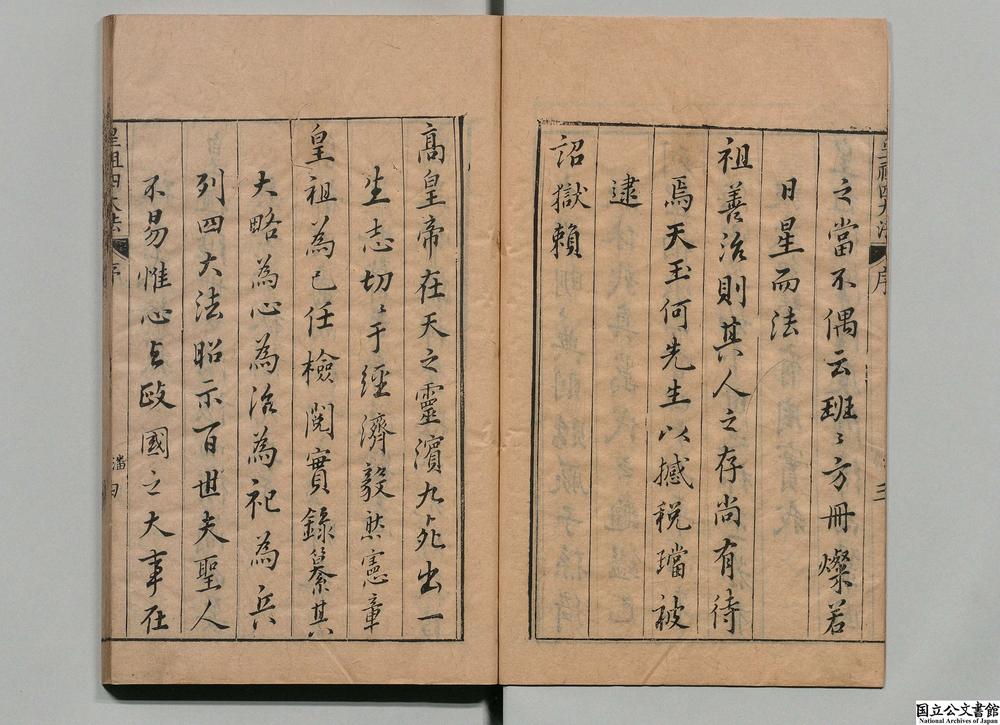 皇祖四大法
序
三
之當不偶云班〻方冊燦若
日星而法
祖善治則其人之存尚有待
焉天玉何先生以撼税璫被
逮
詔獄賴
高皇帝在天之靈濱九死出一
生志切〻于經濟毅然憲章
皇祖為己任檢閱實錄纂其
大略為心為治為祀為兵
列四大法昭示百世夫聖人
不易惟心与政國之大事在
皇祖四大法
序
四
国立公文書館
National Archives of Japan